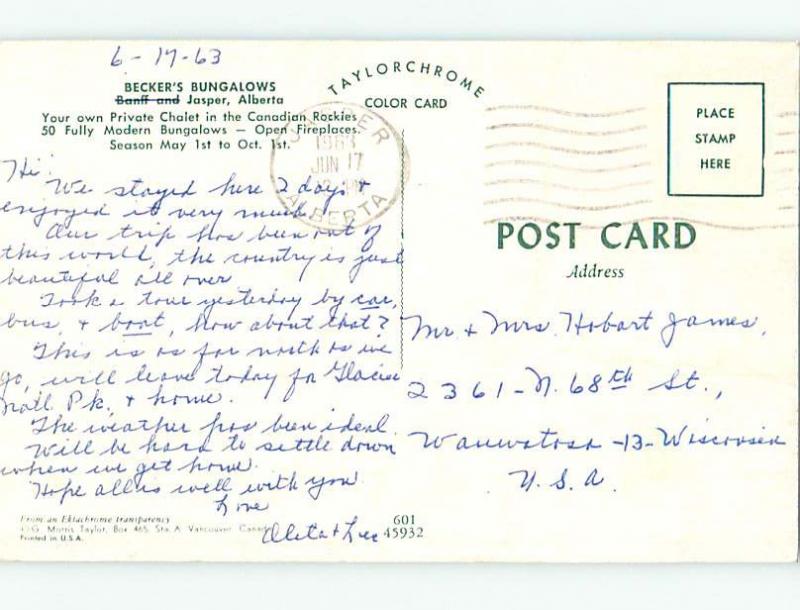 6-17-63
BECKER'S BUNGALOWS
Banff and Jasper, Alberta
Your own Private Chalet in the Canadian Rockies
50 Fully Modern Bungalows — Open Fireplaces.
Season May 1st to Oct. 1st.
TAYLORCHROME
COLOR CARD
JASPER
1963
JUN 17
ALBERTA
PLACE
STAMP
HERE
POST CARD
Address
Hi!
We stayed here 2 days +
enjoyed it very much.
Our trip has been out of
this world, the country is just
beautiful all over
Took a tour yesterday by car,
bus, + boat, how about that?
This is as far north as we
go, will leave today for Glacier
Natl. Pk. + home.
The weather has been ideal.
Will be hard to settle down
when we get home.
Hope all is well with you.
Love
Oleta + Lee
Mr. + Mrs. Hobart James,
2361-N. 68th St.,
Wauwatosa -13- Wisconsin
U.S.A.
From an Ektachrome transparency
G. Morris Taylor, Box 465, Sta. A Vancouver Canada
Printed in U.S.A.
601
45932